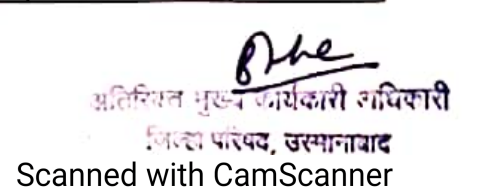 अतिरिक्त मुख्य कार्यकारी अधिकारी
जिल्हा परिषद, उस्मानाबाद
Scanned with CamScanner